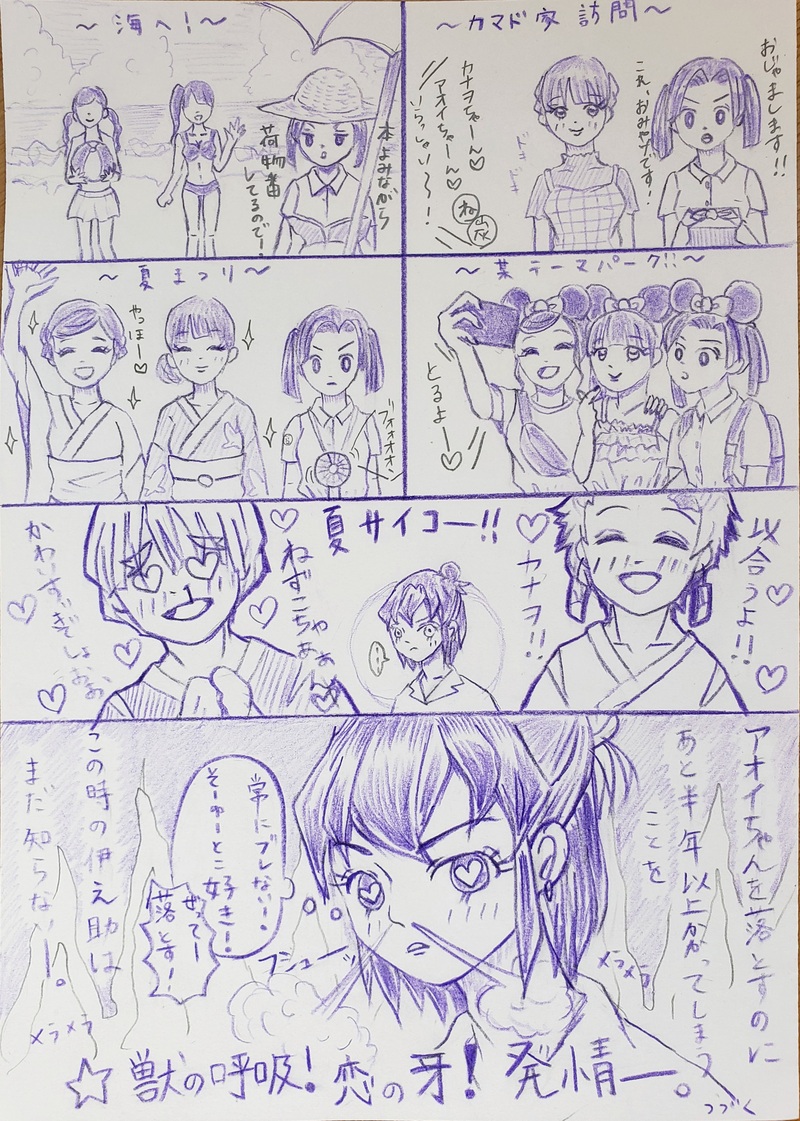 〜カマド家訪問〜
おじゃまします!!
これ、おみやげです!
ドキ
ドキ
カナヲちゃーん♡
アオイちゃーん♡
いらっしゃい〜!
ね
炭
〜海へ!〜
本よみながら
荷物番
してるので!
〜某テーマパーク!!〜
とるよー♡
〜夏まつり〜
やっほー♡
ブォオオオン
夏サイコー!!
似合うよ!!
カナヲ!!
ねずこちゃぁぁん
かわいすぎでしょおお
アオイちゃんを落とすのに
あと半年以上かかってしまう
ことを
常にブレない!
そーゆーとこ好き!
ぜってー
落とす!
フシューッ
この時の伊之助は
まだ知らない―。
メラメラ
メラメラ
☆獣の呼吸!恋の牙!発情―。
つづく